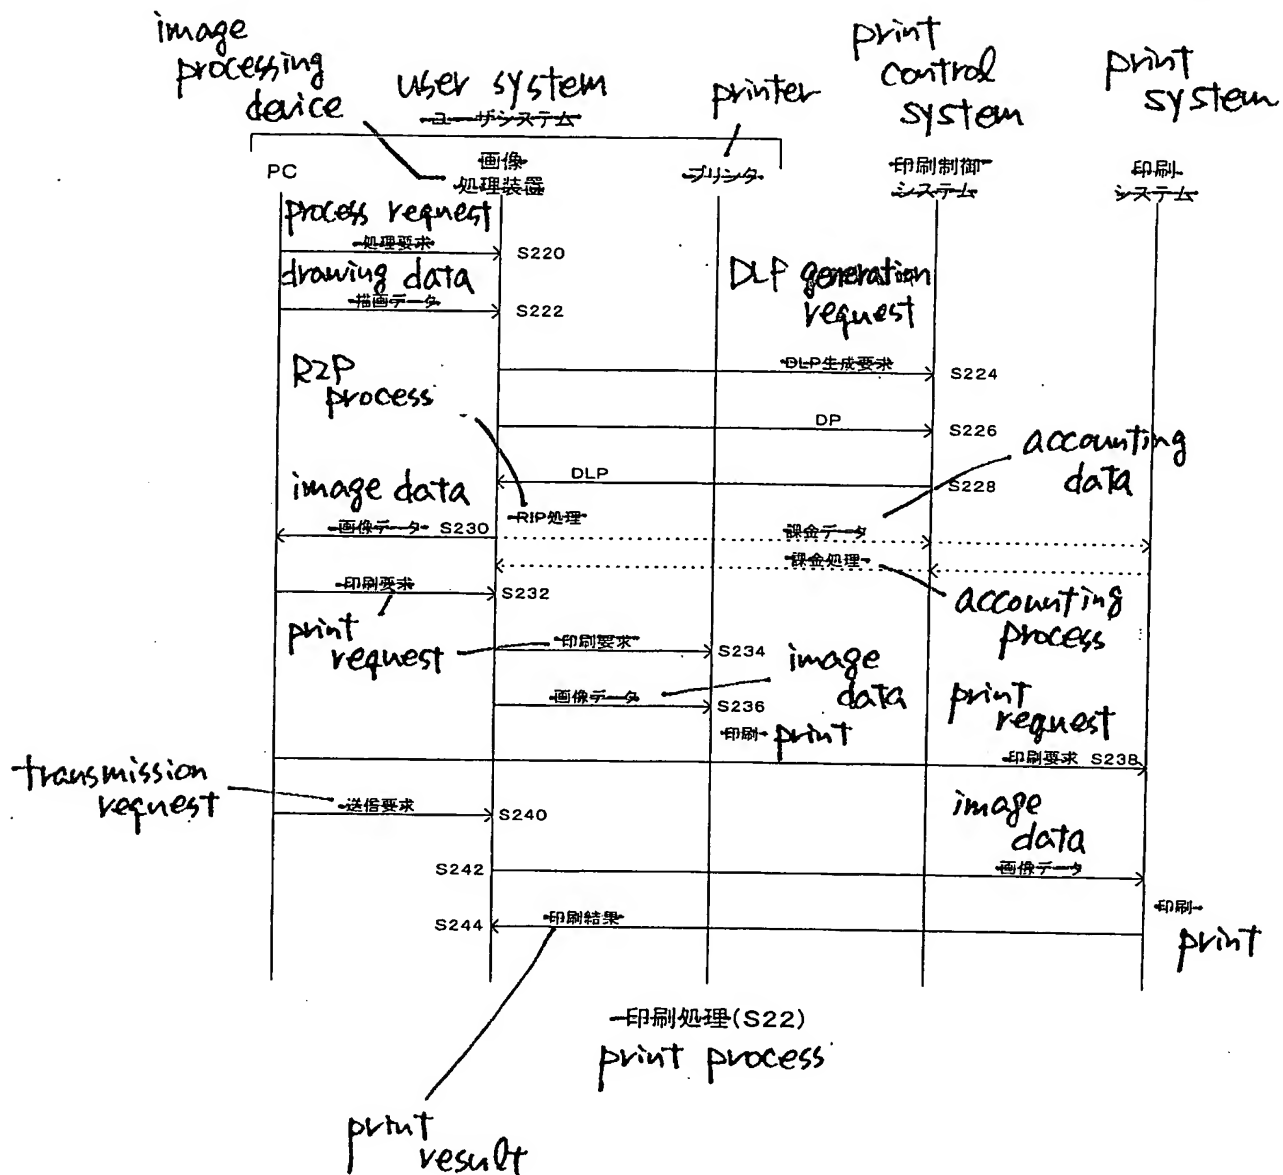 image
processing
device
user system
ユーザシステム
printer
print
control
system
print
system
PC
画像
処理装置
プリンタ
印刷制御
システム
印刷
システム
process request
処理要求
S220
drawing data
描画データ
S222
DLP generation
request
DLP生成要求
S224
RIP
process
DP
S226
accounting
data
DLP
S228
image data
RIP処理
画像データ S230
課金データ
課金処理
印刷要求
S232
accounting
process
print
request
印刷要求
S234
image
data
画像データ
S236
print
request
印刷 print
印刷要求 S238
transmission
request
送信要求
S240
image
data
S242
画像データ
印刷
S244
印刷結果
print
印刷処理(S22)
print process
print
result